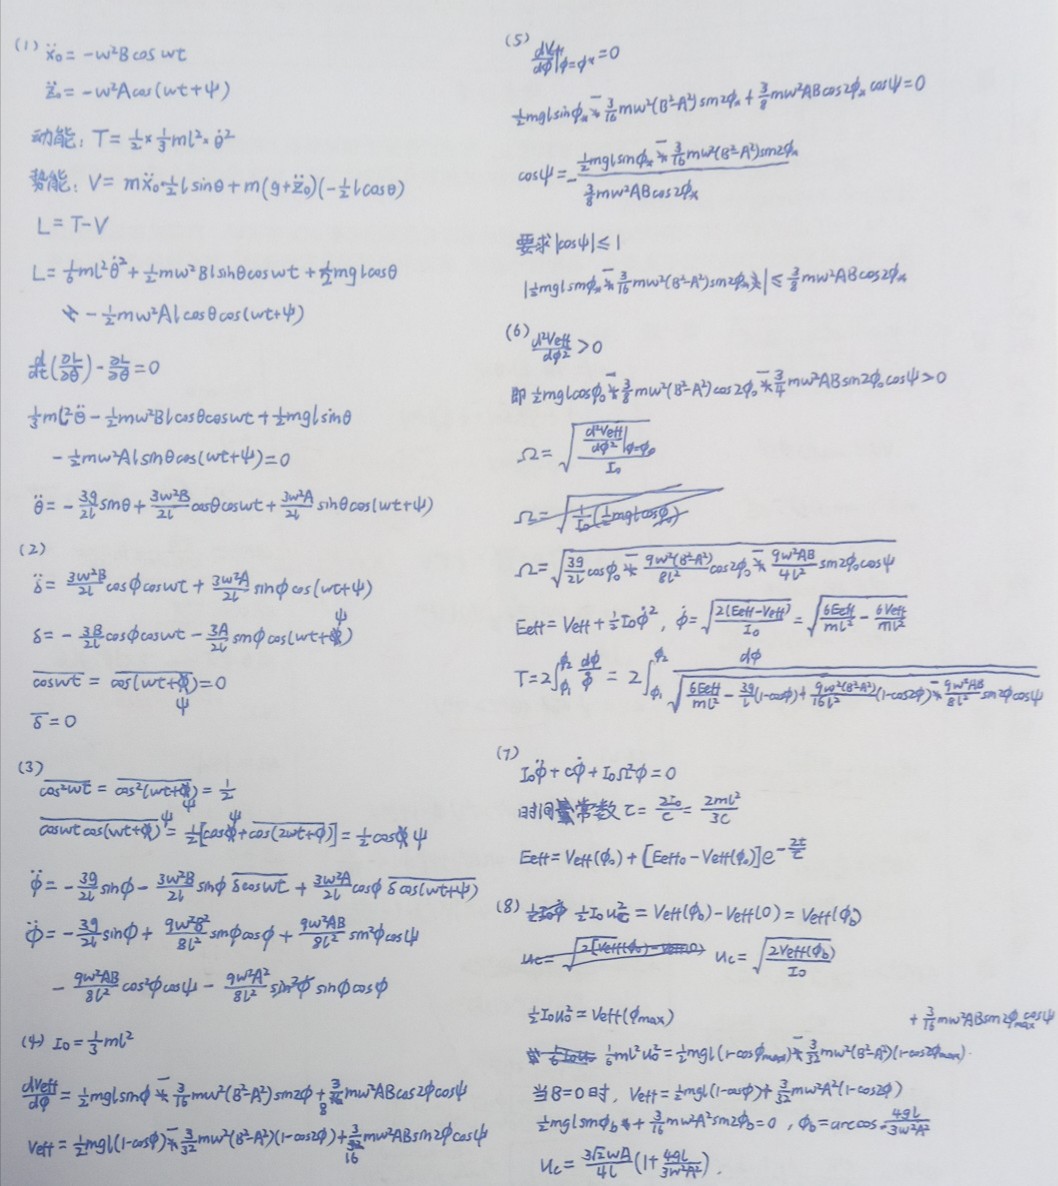 (1) ẍ₀ = -ω²B cos ωt
z̈₀ = -ω²A cos(ωt+ψ)
动能: T = 1/2 × 1/3 ml² · θ̇²
势能: V = mẍ₀·1/2 l sinθ + m(g+z̈₀)(-1/2 l cosθ)
L = T-V
L = 1/6 ml²θ̇² + 1/2 mω²Bl sinθ cos ωt + 1/2 mgl cosθ
- 1/2 mω²Al cosθ cos(ωt+ψ)
d/dt(∂L/∂θ̇) - ∂L/∂θ = 0
1/3 ml²θ̈ - 1/2 mω²Bl cosθ cos ωt + 1/2 mgl sinθ
- 1/2 mω²Al sinθ cos(ωt+ψ) = 0
θ̈ = - 3g/2l sinθ + 3ω²B/2l cosθ cos ωt + 3ω²A/2l sinθ cos(ωt+ψ)
(2)
δ̈ = 3ω²B/2l cosϕ cos ωt + 3ω²A/2l sinϕ cos(ωt+ψ)
δ = - 3B/2l cosϕ cos ωt - 3A/2l sinϕ cos(ωt+ψ)
\overline{cos ωt} = \overline{cos(ωt+ψ)} = 0
\overline{δ} = 0
(3)
\overline{cos²ωt} = \overline{cos²(ωt+ψ)} = 1/2
\overline{cos ωt cos(ωt+ψ)} = 1/2[cosψ + \overline{cos(2ωt+ϕ)}] = 1/2 cosψ
ϕ̈ = - 3g/2l sinϕ - 3ω²B/2l sinϕ \overline{δ cos ωt} + 3ω²A/2l cosϕ \overline{δ cos(ωt+ψ)}
ϕ̈ = - 3g/2l sinϕ + 9ω²B²/8l² sinϕ cosϕ + 9ω²AB/8l² sin²ϕ cosψ
- 9ω²AB/8l² cos²ϕ cosψ - 9ω²A²/8l² sinϕ cosϕ
(4) I₀ = 1/3 ml²
dVeff/dϕ = 1/2 mgl sinϕ - 3/16 mω²(B²-A²) sin2ϕ + 3/8 mω²AB cos2ϕ cosψ
Veff = 1/2 mgl(1-cosϕ) - 3/32 mω²(B²-A²)(1-cos2ϕ) + 3/16 mω²AB sin2ϕ cosψ
(5)
dVeff/dϕ|ϕ=ϕ* = 0
1/2 mgl sinϕ* - 3/16 mω²(B²-A²) sin2ϕ* + 3/8 mω²AB cos2ϕ* cosψ = 0
cosψ = - (1/2 mgl sinϕ* - 3/16 mω²(B²-A²) sin2ϕ*)/(3/8 mω²AB cos2ϕ*)
要求 |cosψ| ≤ 1
|1/2 mgl sinϕ* - 3/16 mω²(B²-A²) sin2ϕ*| ≤ 3/8 mω²AB cos2ϕ*
(6)
d²Veff/dϕ² > 0
即 1/2 mgl cosϕ₀ - 3/8 mω²(B²-A²) cos2ϕ₀ - 3/4 mω²AB sin2ϕ₀ cosψ > 0
Ω = √(d²Veff/dϕ²|ϕ=ϕ₀ / I₀)
Ω = √(3g/2l cosϕ₀ - 9ω²(B²-A²)/8l² cos2ϕ₀ - 9ω²AB/4l² sin2ϕ₀ cosψ)
Eeff = Veff + 1/2 I₀ϕ̇², ϕ̇ = √(2(Eeff-Veff)/I₀) = √(6Eeff/ml² - 6Veff/ml²)
T = 2∫_{ϕ₁}^{ϕ₂} dϕ/ϕ̇ = 2∫_{ϕ₁}^{ϕ₂} dϕ/√(6Eeff/ml² - 3g/l (1-cosϕ) + 9ω²(B²-A²)/16l² (1-cos2ϕ) - 9ω²AB/8l² sin2ϕ cosψ)
(7)
I₀ϕ̈ + cϕ̇ + I₀Ω²ϕ = 0
时间常数 τ = 2I₀/c = 2ml²/3c
Eeff = Veff(ϕ₀) + [Eeff₀ - Veff(ϕ₀)]e^{-2t/τ}
(8) 1/2 I₀u_c² = Veff(ϕ_b) - Veff(0) = Veff(ϕ_b)
u_c = √(2Veff(ϕ_b)/I₀)
1/2 I₀u₀² = Veff(ϕmax)
1/6 ml²u₀² = 1/2 mgl(1-cosϕmax) - 3/32 mω²(B²-A²)(1-cos2ϕmax) + 3/16 mω²AB sin2ϕmax cosψ
当B=0时, Veff = 1/2 mgl(1-cosϕ) + 3/32 mω²A²(1-cos2ϕ)
1/2 mgl sinϕ_b + 3/16 mω²A² sin2ϕ_b = 0, ϕ_b = arccos - 4gl/3ω²A²
u_c = 3√2ωA/4l (1 + 4gl/3ω²A²).